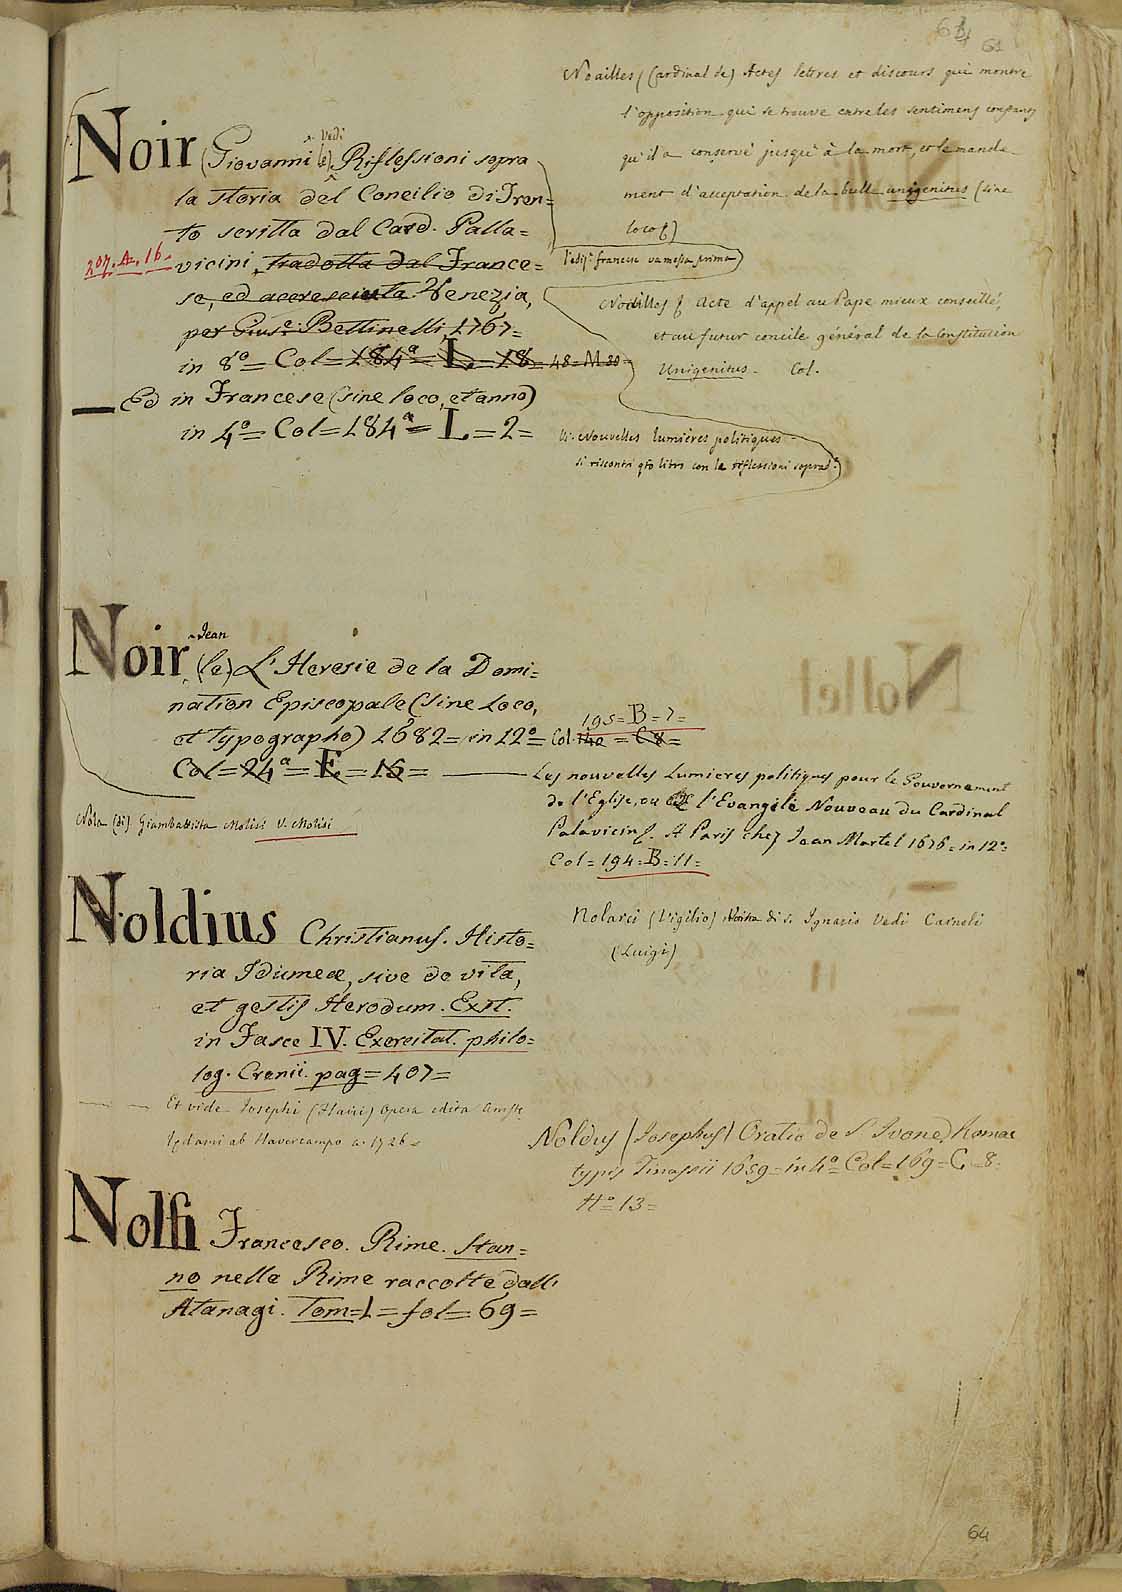 64
61
Noailles (Cardinal de) Actes lettres et discours qui montre
l'opposition qui se trouve entre les sentimens constans
qu'il a conservé jusqu'à la mort, et le mande
ment d'acceptation de la bull unigenitus (sine
loco &)
Noir (Giovanni le) Vedi Riflessioni sopra
la storia del Concilio di Tren=
to scritta dal Card. Palla=
207. A. 16.
vicini, tradotta dal France=
se, ed accresciuta. Venezia,
per Gius.e Bettinelli 1767=
in 8º= Col=184ª= L=18= 48=M 20=
Ed in Francese (sine loco, et anno)
in 4º= Col=184ª= L=2=
l'ediz. francese va messa prima)
Noailles & Acte d'appel au Pape mieux conseillé,
et au futur concile général de la Constitution
Unigenitus. Col.
V. Nouvelles lumières politiques
si riscontri qto libro con le riflessioni soprad.e)
Noir Jean (le) L'Heresie de la Domi=
nation Episcopale (sine loco,
et typographo) 1682= in 12º= Col. 140 = C 8=
195= B=7=
Col=24ª= E=16=
Les nouvelles Lumieres politiques pour le Gouvernement
de l'Eglise, ou l'Evangile Nouveau du Cardinal
Palavicin &. A Paris chez Jean Martel 1676= in 12º=
Col= 194=B=11=
Nola (di) Giambattista Molisi V. Molisi
Noldius Christianus. Histo=
ria Idumeæ, sive de vita,
et gestis Herodum. Exst.
in Fasce IV. Exercitat. philo=
log. Crenii. pag=407=
Et vide Josephi (Flavii) Opera edita Amste
lædami ab Havercampo a. 1726=
Nolarci (Vigilio) Vita di S. Ignazio Vedi Carnoli
(Luigi)
Noldus (Josephus) Oratio de S. Ivone, Romae
typis Tinassii 1659= in 4º= Col=169=C=8=
Nº 13=
Nolfi Francesco. Rime. Stan=
no nelle Rime raccolte dall'
Atanagi. Tom=1=fol=69=
64